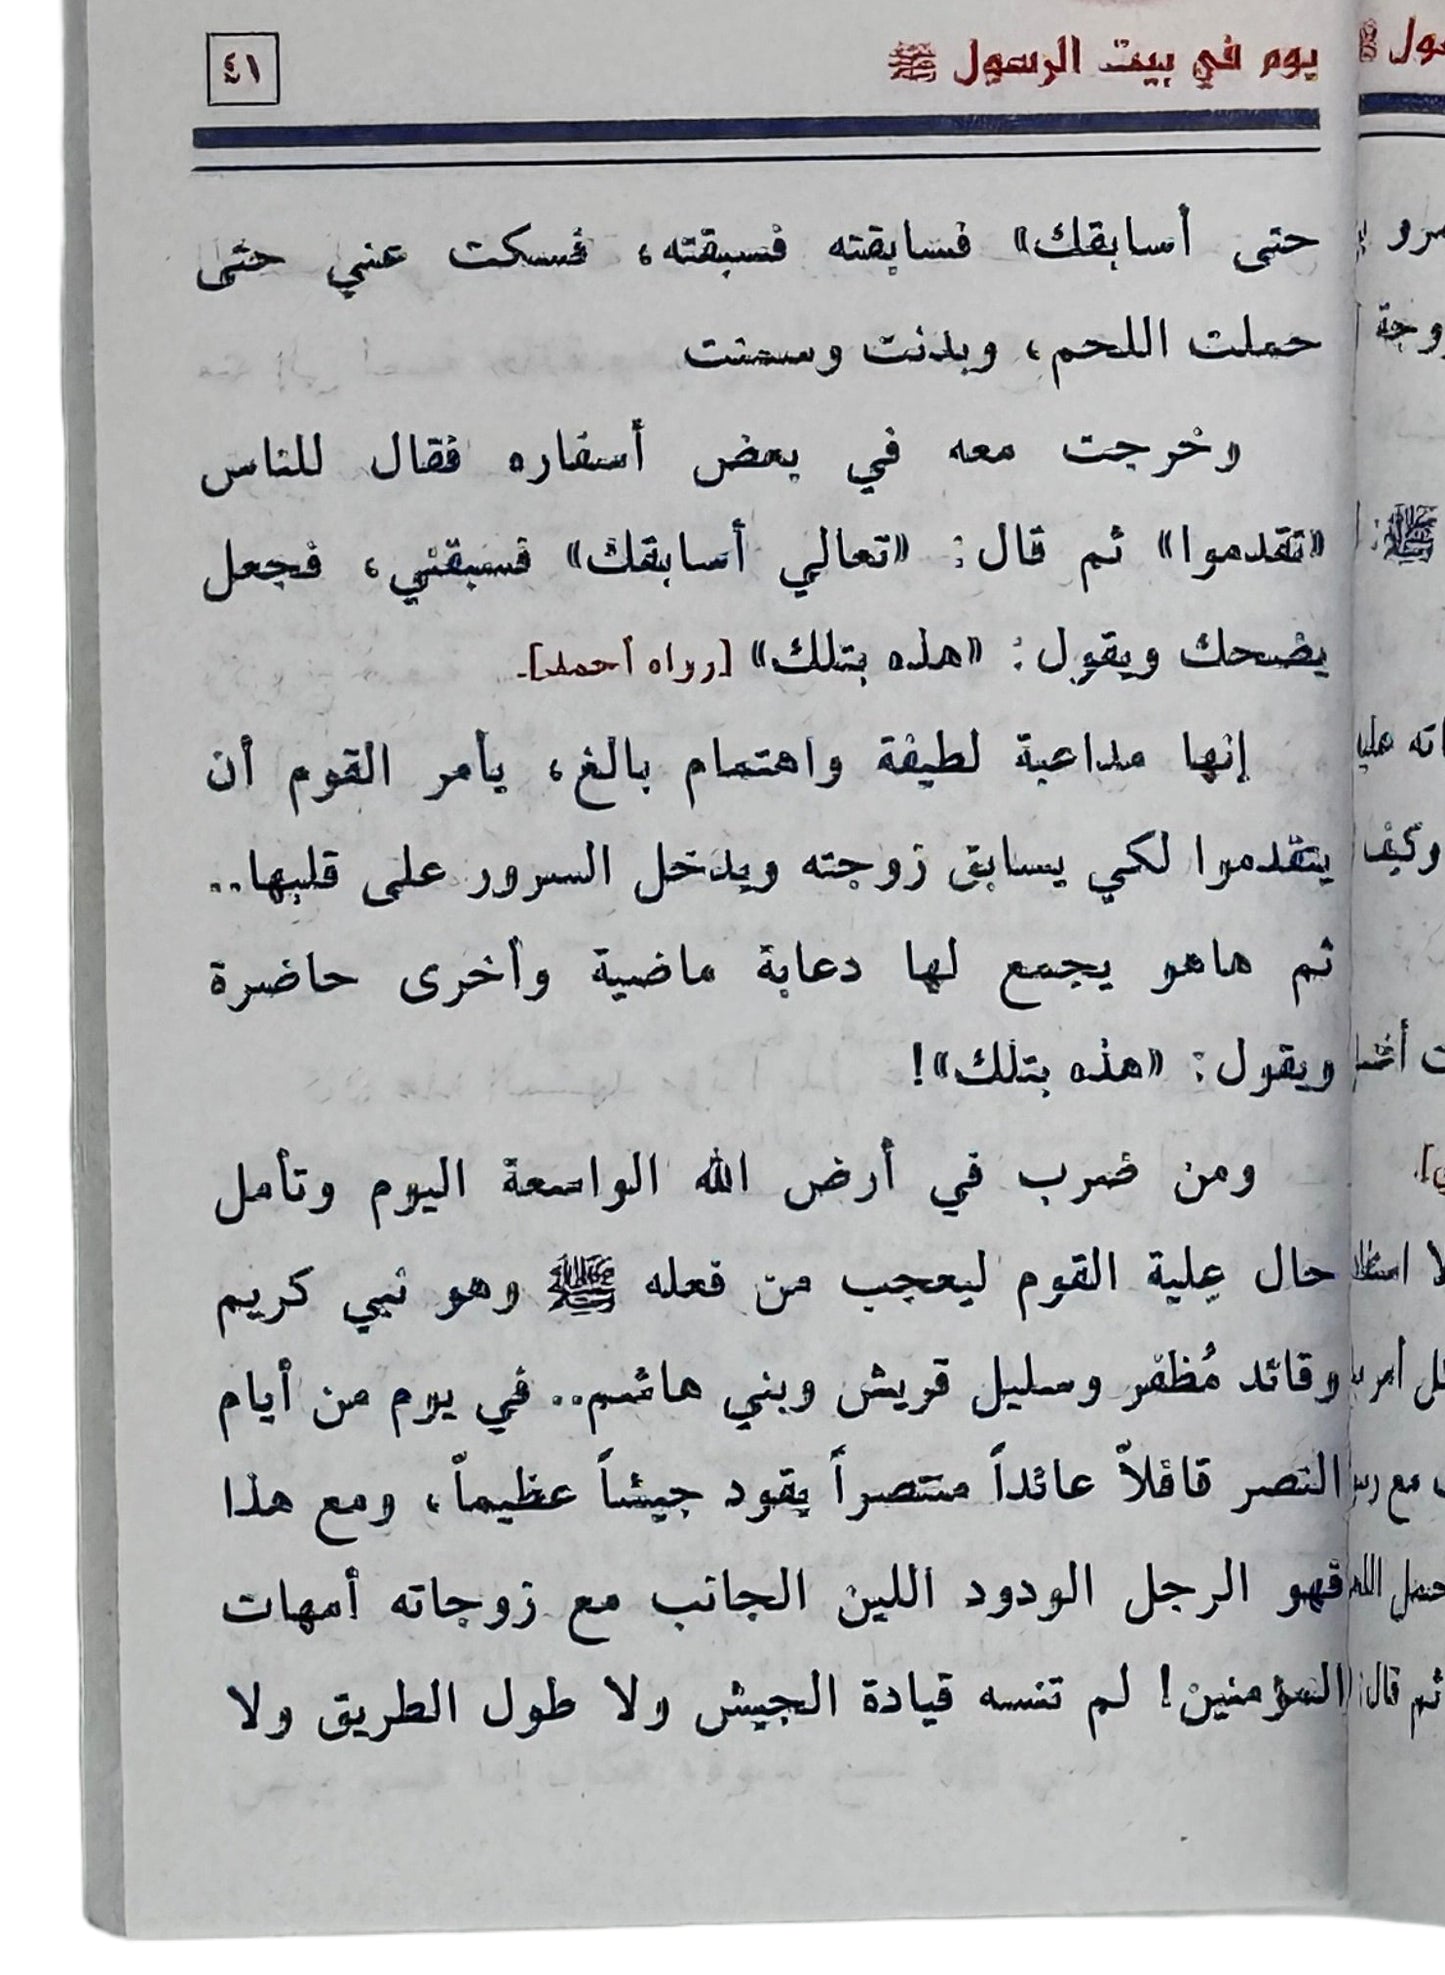 يوم في بيت الرسول ﷺ
٤١
حتى أسابقك» فسابقته فسبقته، فسكت عني حتى
حملت اللحم، وبدنت وسمنت
وخرجت معه في بعض أسفاره فقال للناس
«تقدموا» ثم قال: «تعالي أسابقك» فسبقني، فجعل
يضحك ويقول: «هذه بتلك» [رواه أحمد].
إنها مداعبة لطيفة واهتمام بالغ، يأمر القوم أن
يتقدموا لكي يسابق زوجته ويدخل السرور على قلبها..
ثم هاهو يجمع لها دعابة ماضية وأخرى حاضرة
ويقول: «هذه بتلك»!
ومن ضرب في أرض الله الواسعة اليوم وتأمل
حال عِلية القوم ليعجب من فعله ﷺ وهو نبي كريم
وقائد مُظفر وسليل قريش وبني هاشم.. في يوم من أيام
النصر قافلاً عائداً منتصراً يقود جيشاً عظيماً، ومع هذا
فهو الرجل الودود اللين الجانب مع زوجاته أمهات
المؤمنين! لم تنسه قيادة الجيش ولا طول الطريق ولا